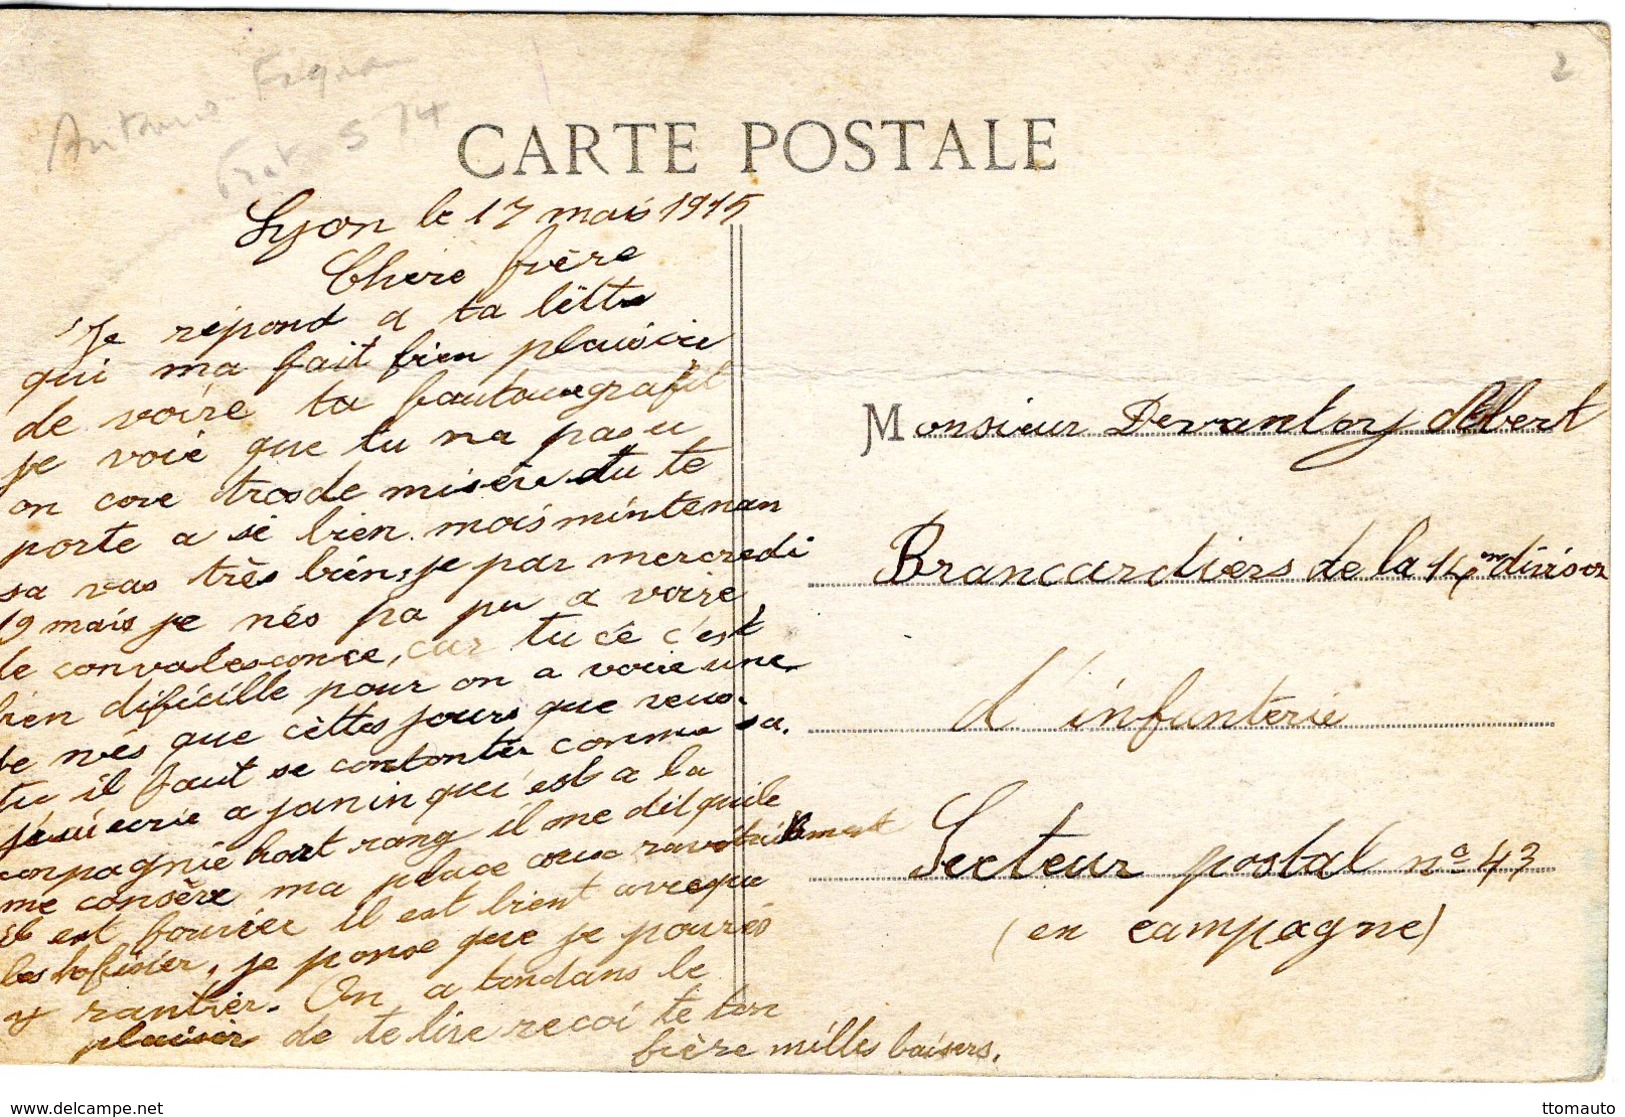 2
S 14
CARTE POSTALE
Lyon le 17 mais 1915
Chere frère
Je répond a ta lêttre
qui ma fait bien plaisire
de voire ta fautauegrafit
je voie que tu na pas u
en core tros de misère tu te
porte a si bien mais mintenan
sa vas très bien, je par mercredi
19 mais je nés pa pu a voire
de convalesconce, car tu cé c'est
bien dificille pour on a voire une
Je nés que cèttes jours que
tu il faut se contonter comme sa.
j'ésui écrie a janin qui est a la
conpagnie hort rang il me dit quile
me consère ma place couse ravitaillement
il est fourier il est bient avèque
les hofisier, je ponse que je pourés
y rantrér. On a tondans le
plaisir de te lire recoi te ton
frère milles baisers.
Monsieur Devantoy Albert
Brancardiers de la 14em division
d'infanterie
Secteur postal no 43
(en campagne)
delcampe.net
ttomauto